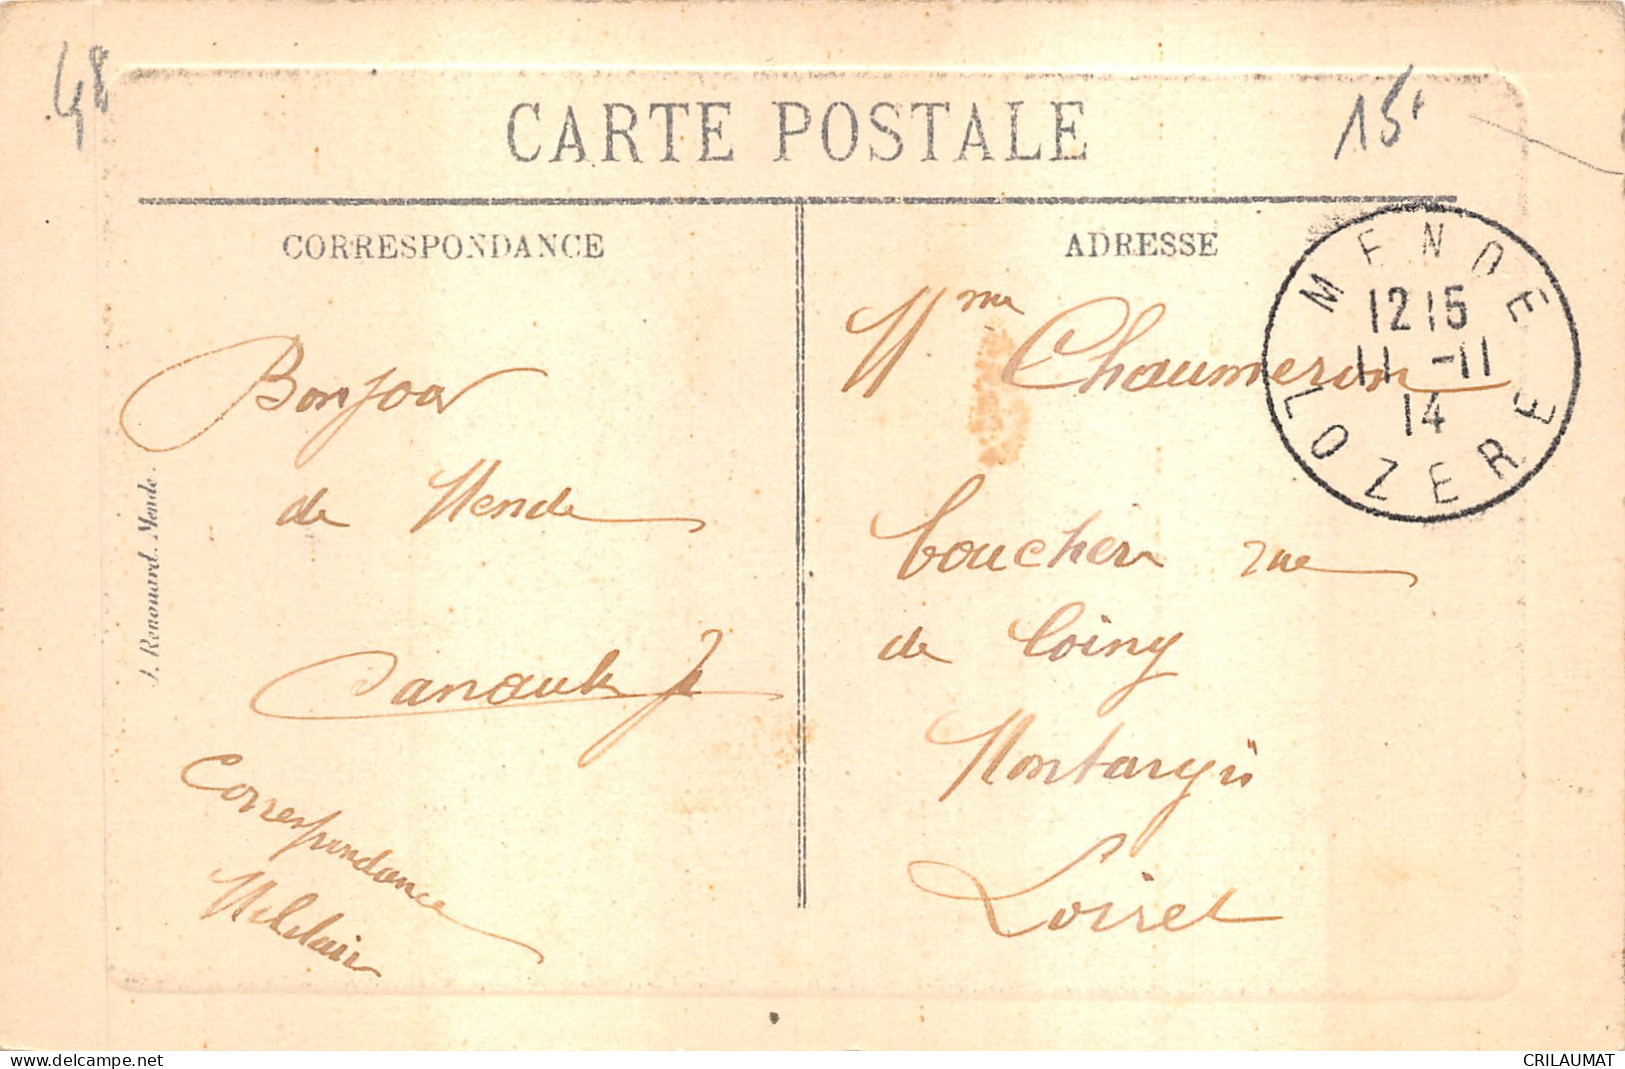 48
15
CARTE POSTALE
CORRESPONDANCE
ADRESSE
MENDE
12 15
11 -11
14
LOZERE
Bonjour
de Mende
Correspondance
Militaire
J. Renouard. Mende.
Mme Chaumeron
boucher rue
de Loing
Montargis
Loiret
www.delcampe.net
CRILAUMAT